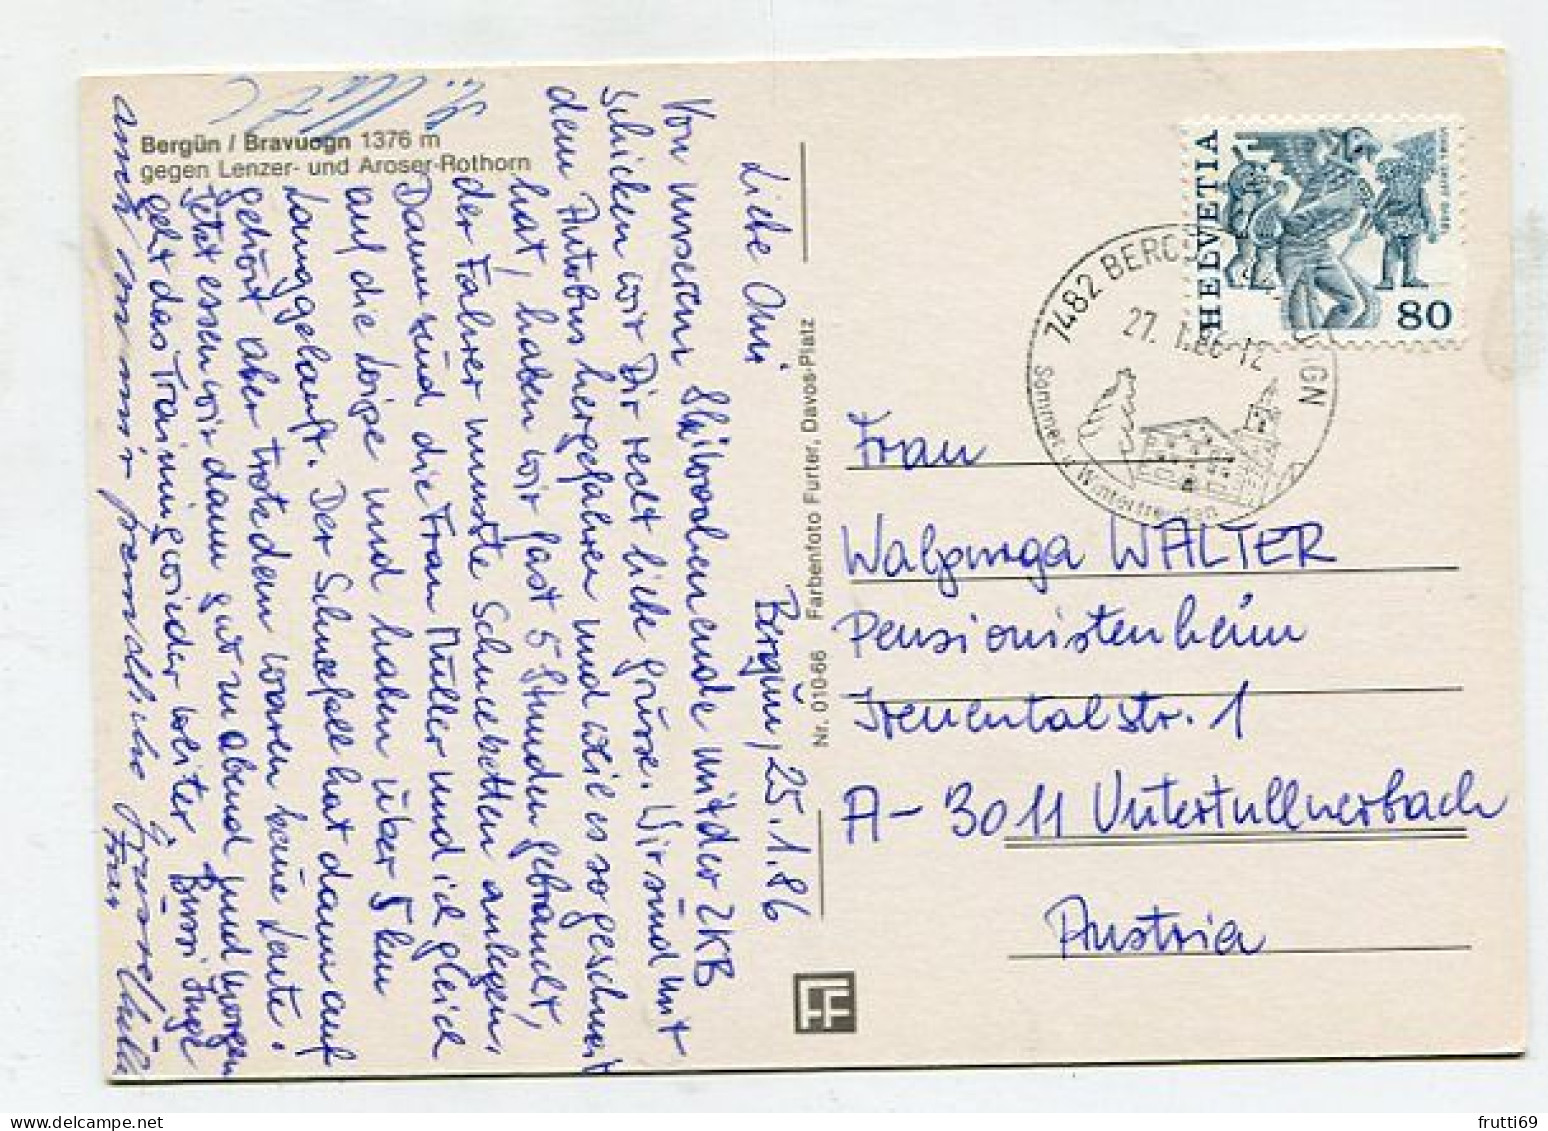 Bergün / Bravuogn 1376 m
gegen Lenzer- und Aroser-Rothorn
Bergün, 25.1.86
Liebe Omi
Von unserem Skiwochenende mit der ZKB
schicken wir Dir recht liebe Grüsse. Wir sind mit
dem Autobus hergefahren und weil es so geschneit
hat, haben wir fast 5 Stunden gebraucht,
der Fahrer musste Schneeketten anlegen.
Dann sind die Frau Müller und ich gleich
auf die Loipe und haben über 5 km
Langgelauft. Der Schneefall hat dann auf
gehört aber trotzdem waren keine Leute.
Jetzt essen wir dann gut zu abend und morgen
geht das Training wieder weiter. Bussi Inge
auch von mir freundliche Grüsse
Frau Müller
Nr. 010-66 Farbenfoto Furter, Davos-Platz
FF
HELVETIA
80
7482 BERGÜN
27. 1.86-12
Sommer- u. Winterfreuden
Frau
Walpurga WALTER
Pensionistenheim
Irenentalstr. 1
A- 3011 Untertullnerbach
Austria
frutti69